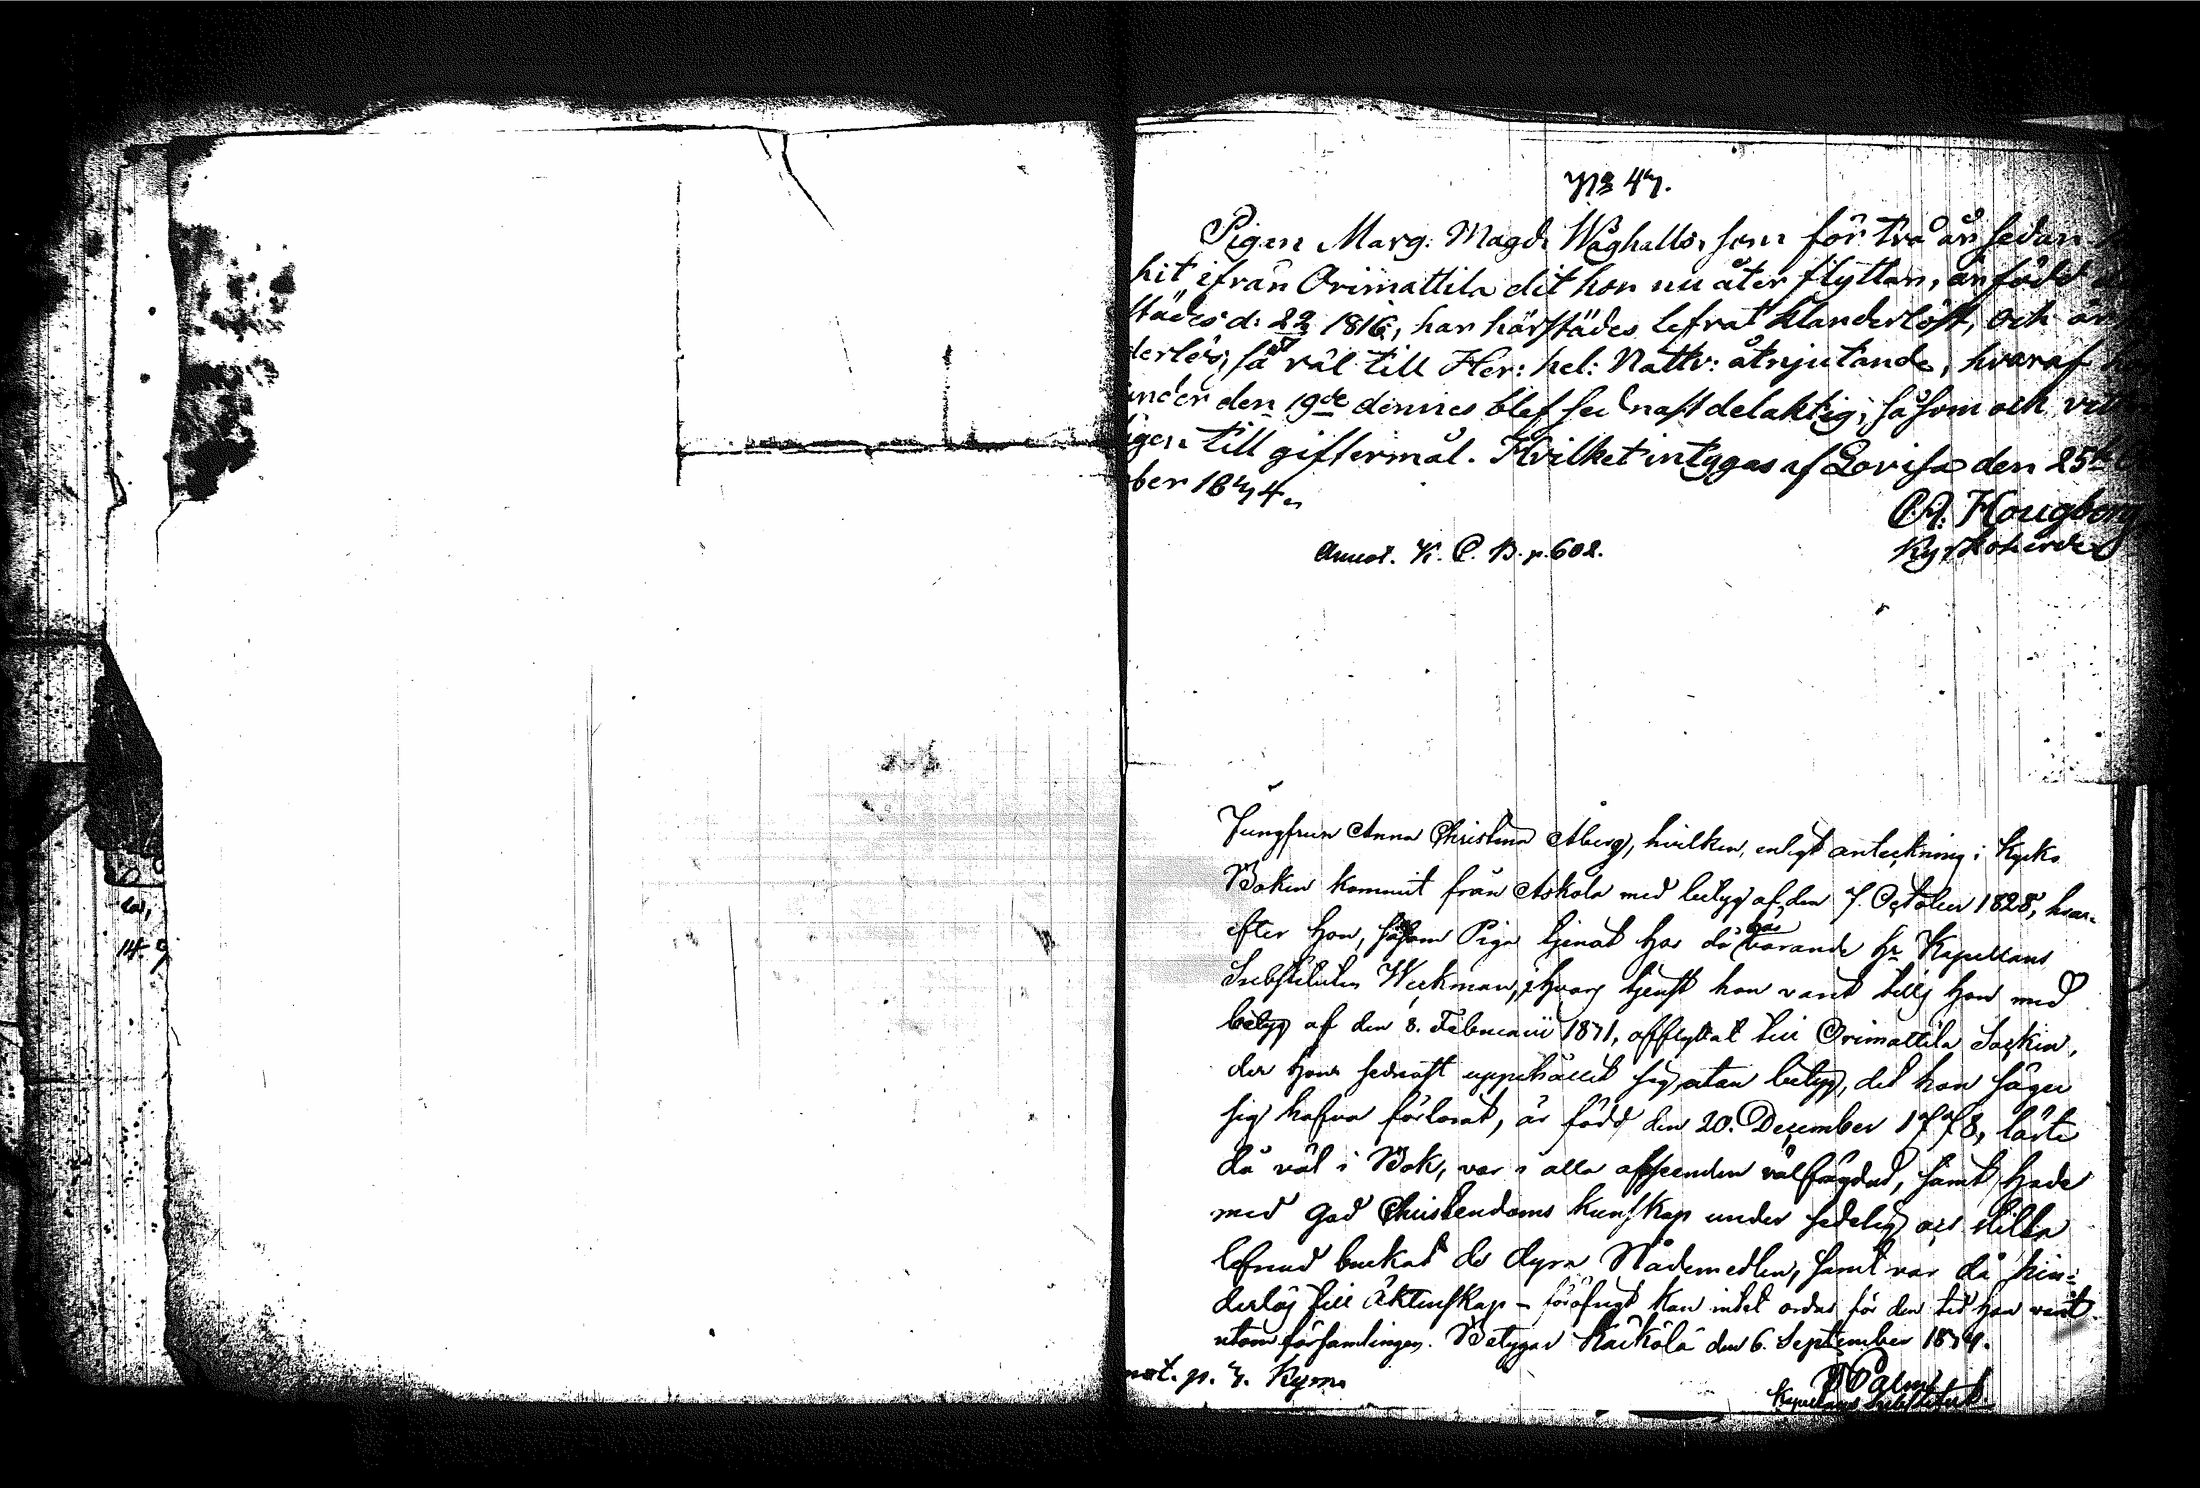 N:o 47.
Pigan Marg: Magd: Wåghalls, som för två år sedan
hit ifrån Orimattila dit hon nu åter flyttar, är född
städes d: 22 1816, har härstädes lefvat klanderlöst, och är
derlös; så väl till Her: hel: Nattv: åtnjutande, hvaraf
under den 19de dennes blef sednast delaktig, såsom ock
igen till giftermål. Hvilket intygas af Lovisa den 25te
ber 1834.
Hougberg
Kyrkoherde
Annot. K. C. B. p. 602.
Jungfrun Anna Christina Åberg, hvilken, enligt anteckning i Kyrko
Boken kommit från Askola med betyg af den 7. October 1828, hvar-
efter hon, såsom Piga tjenat hos då varande Hr Kapellans
Substituten Weckman, i hvars tjenst hon varit tills hon med
betyg af den 8. Februarii 1831, afflyttat till Orimattila Socken,
der hon sednast uppehållit sig, utan betyg, det hon säger
sig hafva förlorat, är född den 20. December 1778, läste
då väl i Bok, var i alla afseenden välfrägdad, samt hade
med god Christendoms kunskap under sedelig och stilla
lefnad brukat de dyra Nådemedlen, samt var då hin-
derlös till Äktenskap – föröfrigt kan intet ordas för den tid hon varit
utom församlingen. Betygar Kärkölä den 6. September 1834.
Palm
Kapellans Substitut
not. p. 3. Kymi